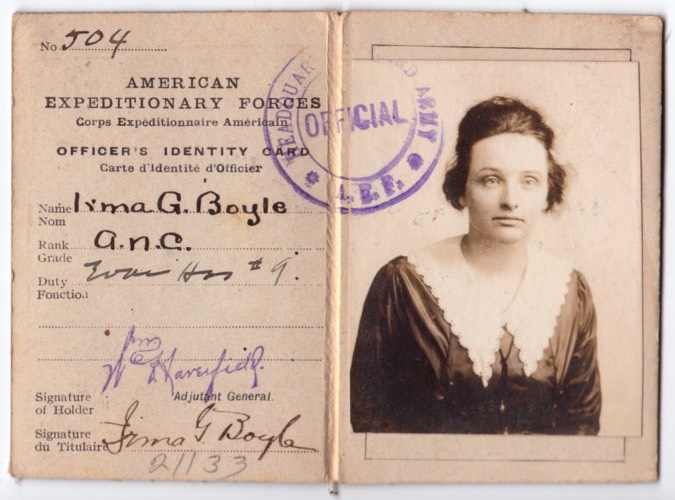 No 504
AMERICAN
EXPEDITIONARY FORCES
Corps Expéditionnaire Américain
OFFICER'S IDENTITY CARD
Carte d'Identité d'Officier
Name Irma G. Boyle
Nom
Rank A.N.C.
Grade
Duty Evac Hos #9.
Fonction
Wm Haverfield.
Signature Adjutant General.
of Holder
Signature Irma G Boyle
du Titulaire
21133
HEADQUARTERS ARMY
OFFICIAL
A. E. F.